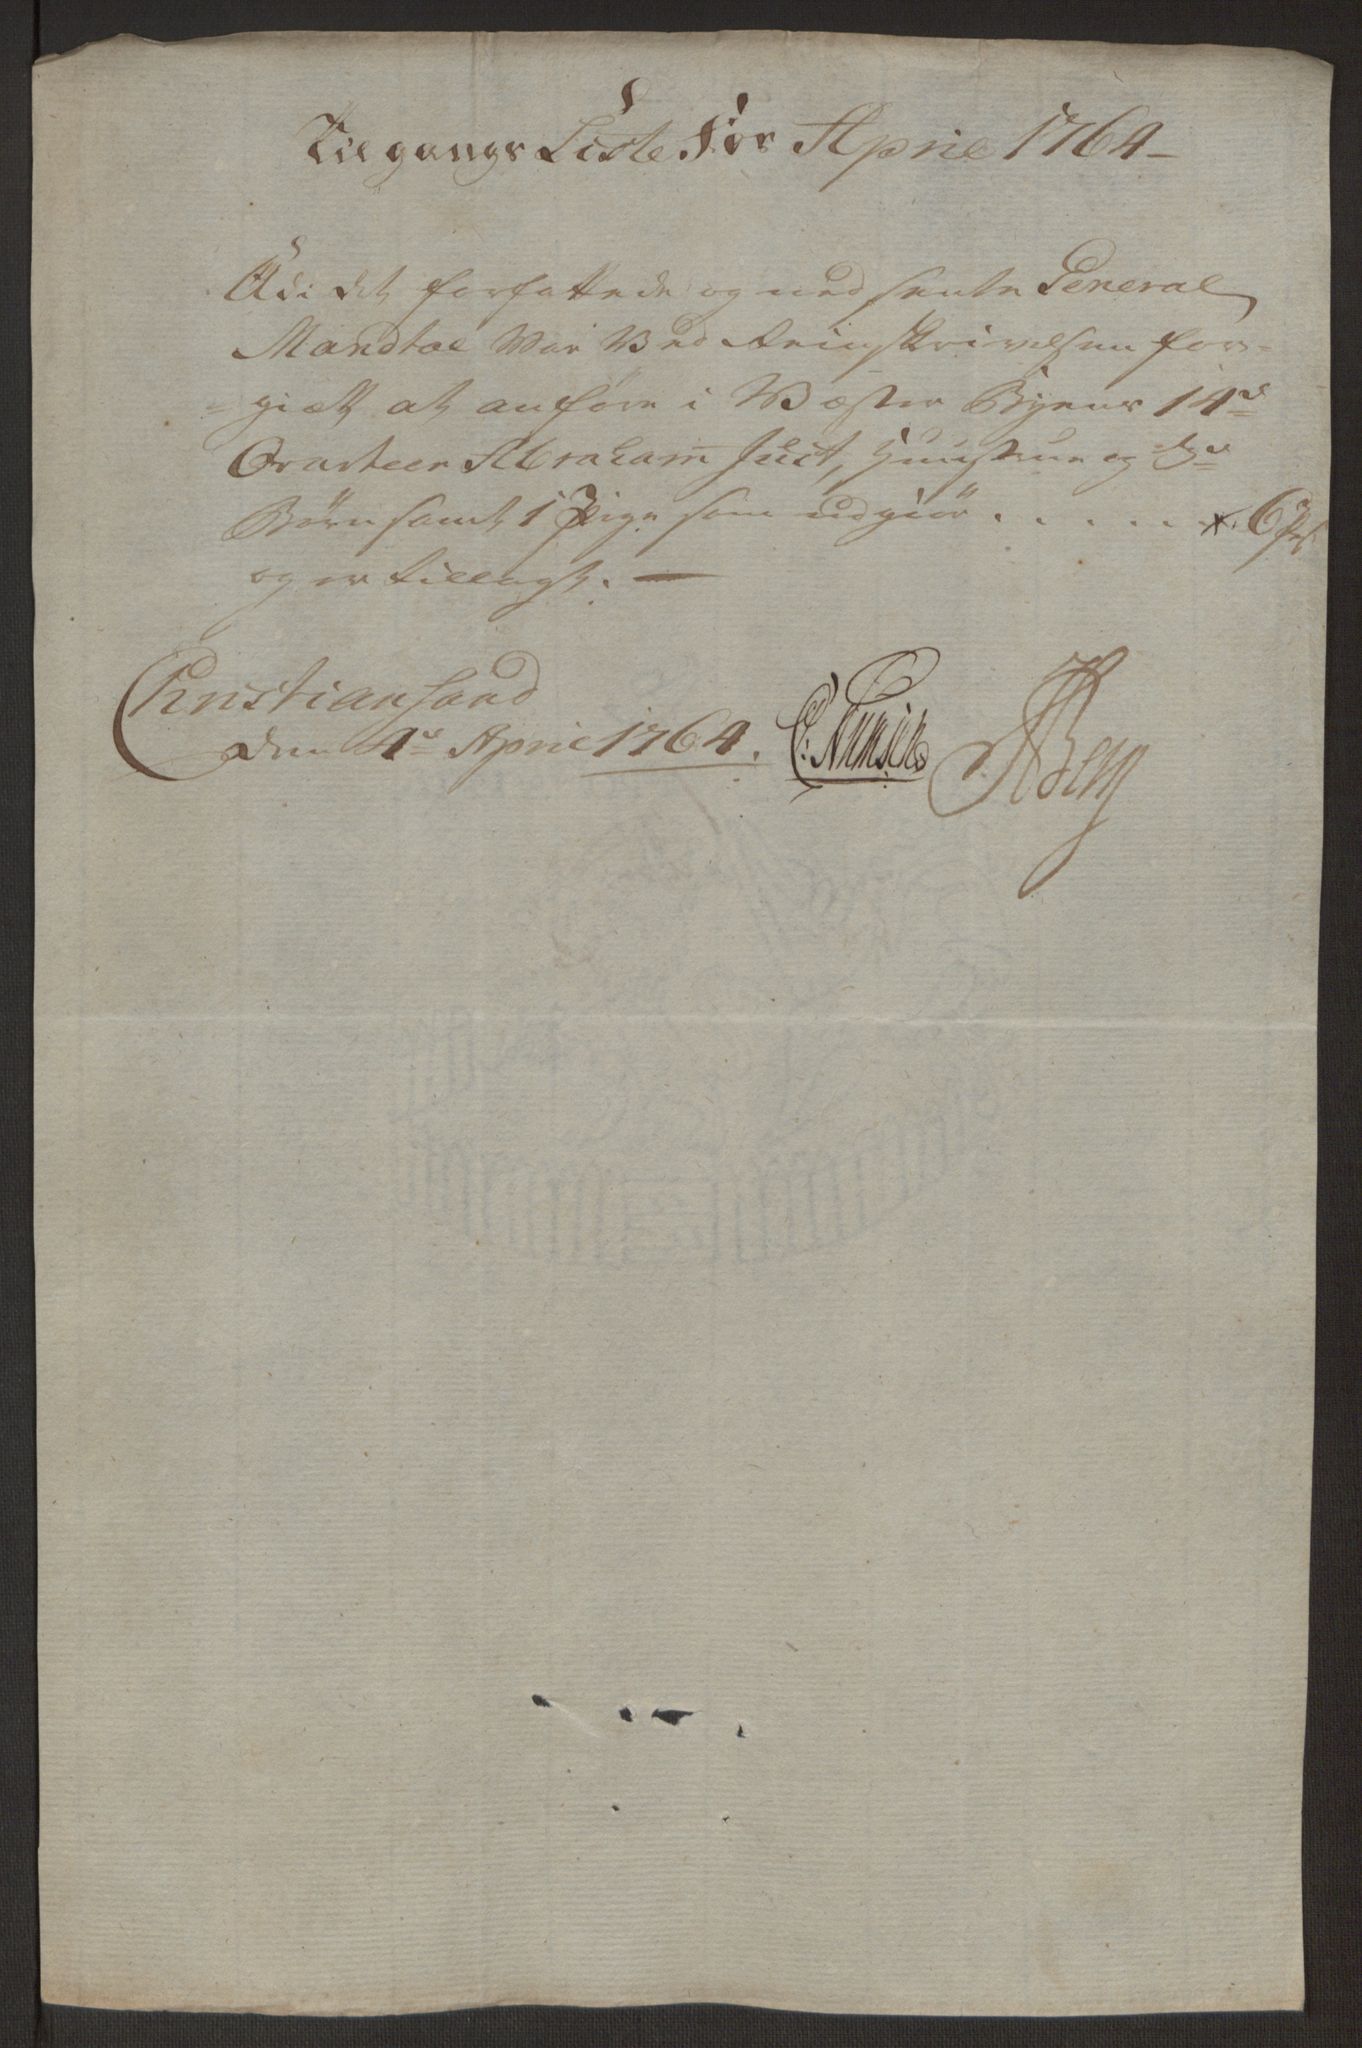 Tilgangs Liste for April 1764 -
Udi det forfattede og nedsente General
Mandtal war wed Reinskrivelsen for-
-giætt at anføre i Wæster Byens 14de
Qvarteer Abraham Just, Huustrue og
Børn samt 1 Pige som udgiør . . . . . . 6 Ps
og er tillagt. —
Christiansand
den 4de April 1764.